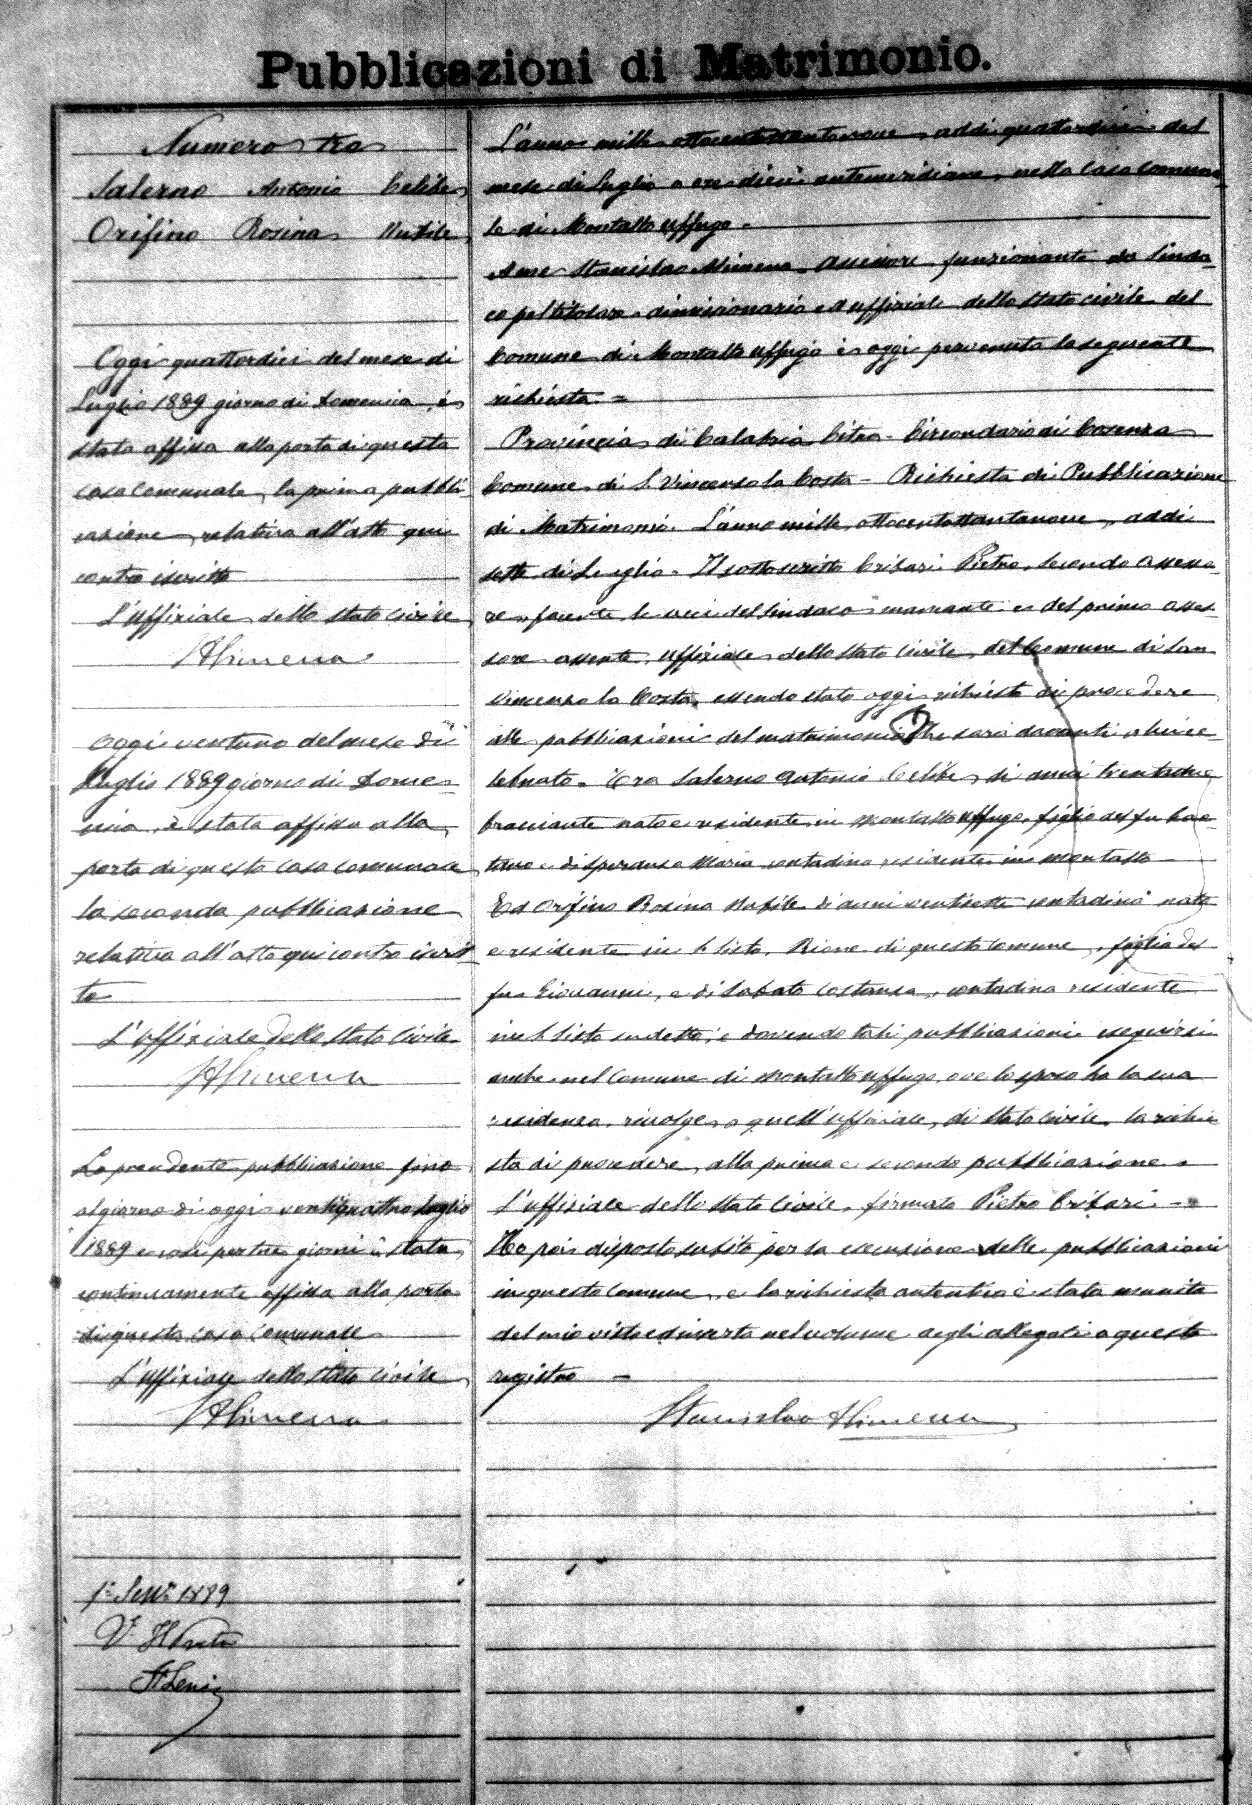 Pubblicazioni di Matrimonio.
Numero tre
Salerno Antonio Celibe
Orifino Rosina Nubile
Oggi quattordici del mese di
Luglio 1889 giorno di Domenica, è
stata affissa alla porta di questa
casa comunale, la prima pubbli
cazione relativa all'atto qui
contro iscritto
L'uffiziale dello stato civile
Oggi ventuno del mese di
Luglio 1889 giorno di Dome-
nica, è stata affissa alla
porta di questa casa comunale
la seconda pubblicazione
relativa all'atto qui contro iscrit
to
L'uffiziale dello stato civile
La precedente pubblicazione fino
al giorno di oggi ventiquattro luglio
1889 e così per tre giorni è stata
continuamente affissa alla porta
di questa casa comunale
L'uffiziale dello stato civile
1889
L'anno mille ottocentottantanove, addi quattordici del
mese di Luglio a ore dieci antemeridiane, nella casa comuna-
le di Montalto Uffugo.
A me Stanislao Assessore funzionante da Sinda-
co pel titolare dimissionario ed uffiziale dello stato civile del
Comune di Montalto Uffugo è oggi pervenuta la seguente
richiesta =
Provincia di Calabria Citra - Circondario di Cosenza
Comune di S. Vincenzo la Costa - Richiesta di Pubblicazione
di Matrimonio. L'anno mille ottocentottantanove, addi
sette di Luglio - Il sottoscritto Pietro, secondo assesso-
re facente le veci del Sindaco mancante e del primo asses-
sore assente, uffiziale dello stato civile del Comune di San
Vincenzo la Costa, essendo stato oggi richiesto di procedere
alle pubblicazioni del matrimonio che sarà davanti a lui ce-
lebrato - Tra Salerno Antonio Celibe, di anni trentadue
bracciante nato e residente in Montalto Uffugo, figlio del fu Gae-
tano e di Speranza Maria contadina residente in Montalto -
Ed Orifino Rosina Nubile di anni ventisette contadina nata
e residente in S. Sisto, Rione di questo Comune, figlia del
fu Giovanni, e di Sabato Costanza, contadina residente
in S. Sisto sudetto; e dovendo tali pubblicazioni eseguirsi
anche nel Comune di Montalto Uffugo, ove lo sposo ha la sua
residenza, rivolge a quell'uffiziale di stato civile, la richie
sta di procedere, alla prima e seconda pubblicazione.
L'uffiziale dello stato civile, firmato Pietro
Ho poi disposto subito per la esecuzione delle pubblicazioni
in questo Comune, e la richiesta autentica è stata munita
del mio visto ed inserta nel volume degli allegati a questo
registro -
Stanislao